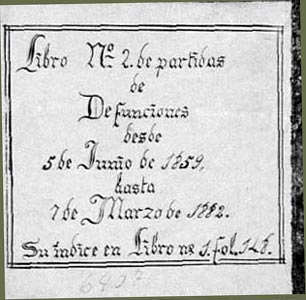 Libro Nº 2. de partidas
de
Defunciones
desde
5 de Junio de 1859,
hasta
7 de Marzo de 1882.
Su índice en Libro nº 1. fol. 148.